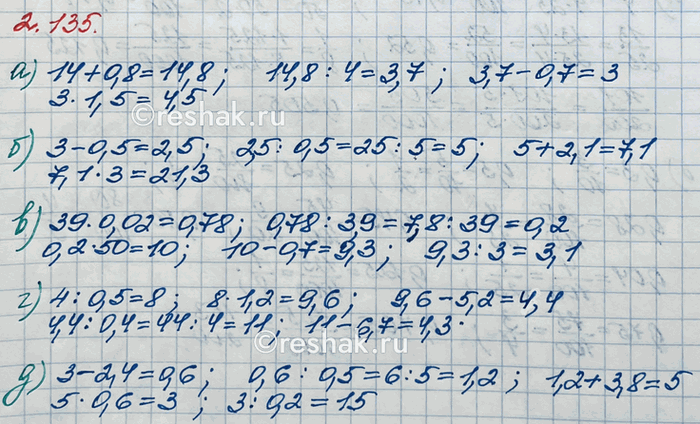 2.135.
а) 14+0,8=14,8; 14,8:4=3,7; 3,7-0,7=3
3·1,5=4,5
©reshak.ru
б) 3-0,5=2,5; 2,5:0,5=25:5=5; 5+2,1=7,1
7,1·3=21,3
в) 39·0,02=0,78; 0,78:3,9=7,8:39=0,2
0,2·50=10; 10-0,7=9,3; 9,3:3=3,1
г) 4:0,5=8; 8·1,2=9,6; 9,6-5,2=4,4
4,4:0,4=44:4=11; 11-6,7=4,3.
©reshak.ru
д) 3-2,4=0,6; 0,6:0,5=6:5=1,2; 1,2+3,8=5
5·0,6=3; 3:0,2=15